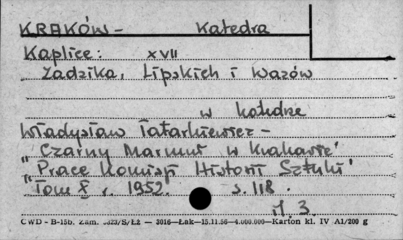 KRAKÓW – Katedra
Kaplice: XVII
Zadzika, Lipskich i Wazów
w katedrze
Władysław Tatarkiewicz –
„Czarny Marmur w Krakowie”
„Prace Komisji Historii Sztuki”
Tom X r. 1952. s. 118.
CWD - B-15b. Zam. 3023/S/Łź — 3016—Łak—15.11.56—4.000.000—Karton kl. IV A1/200 g